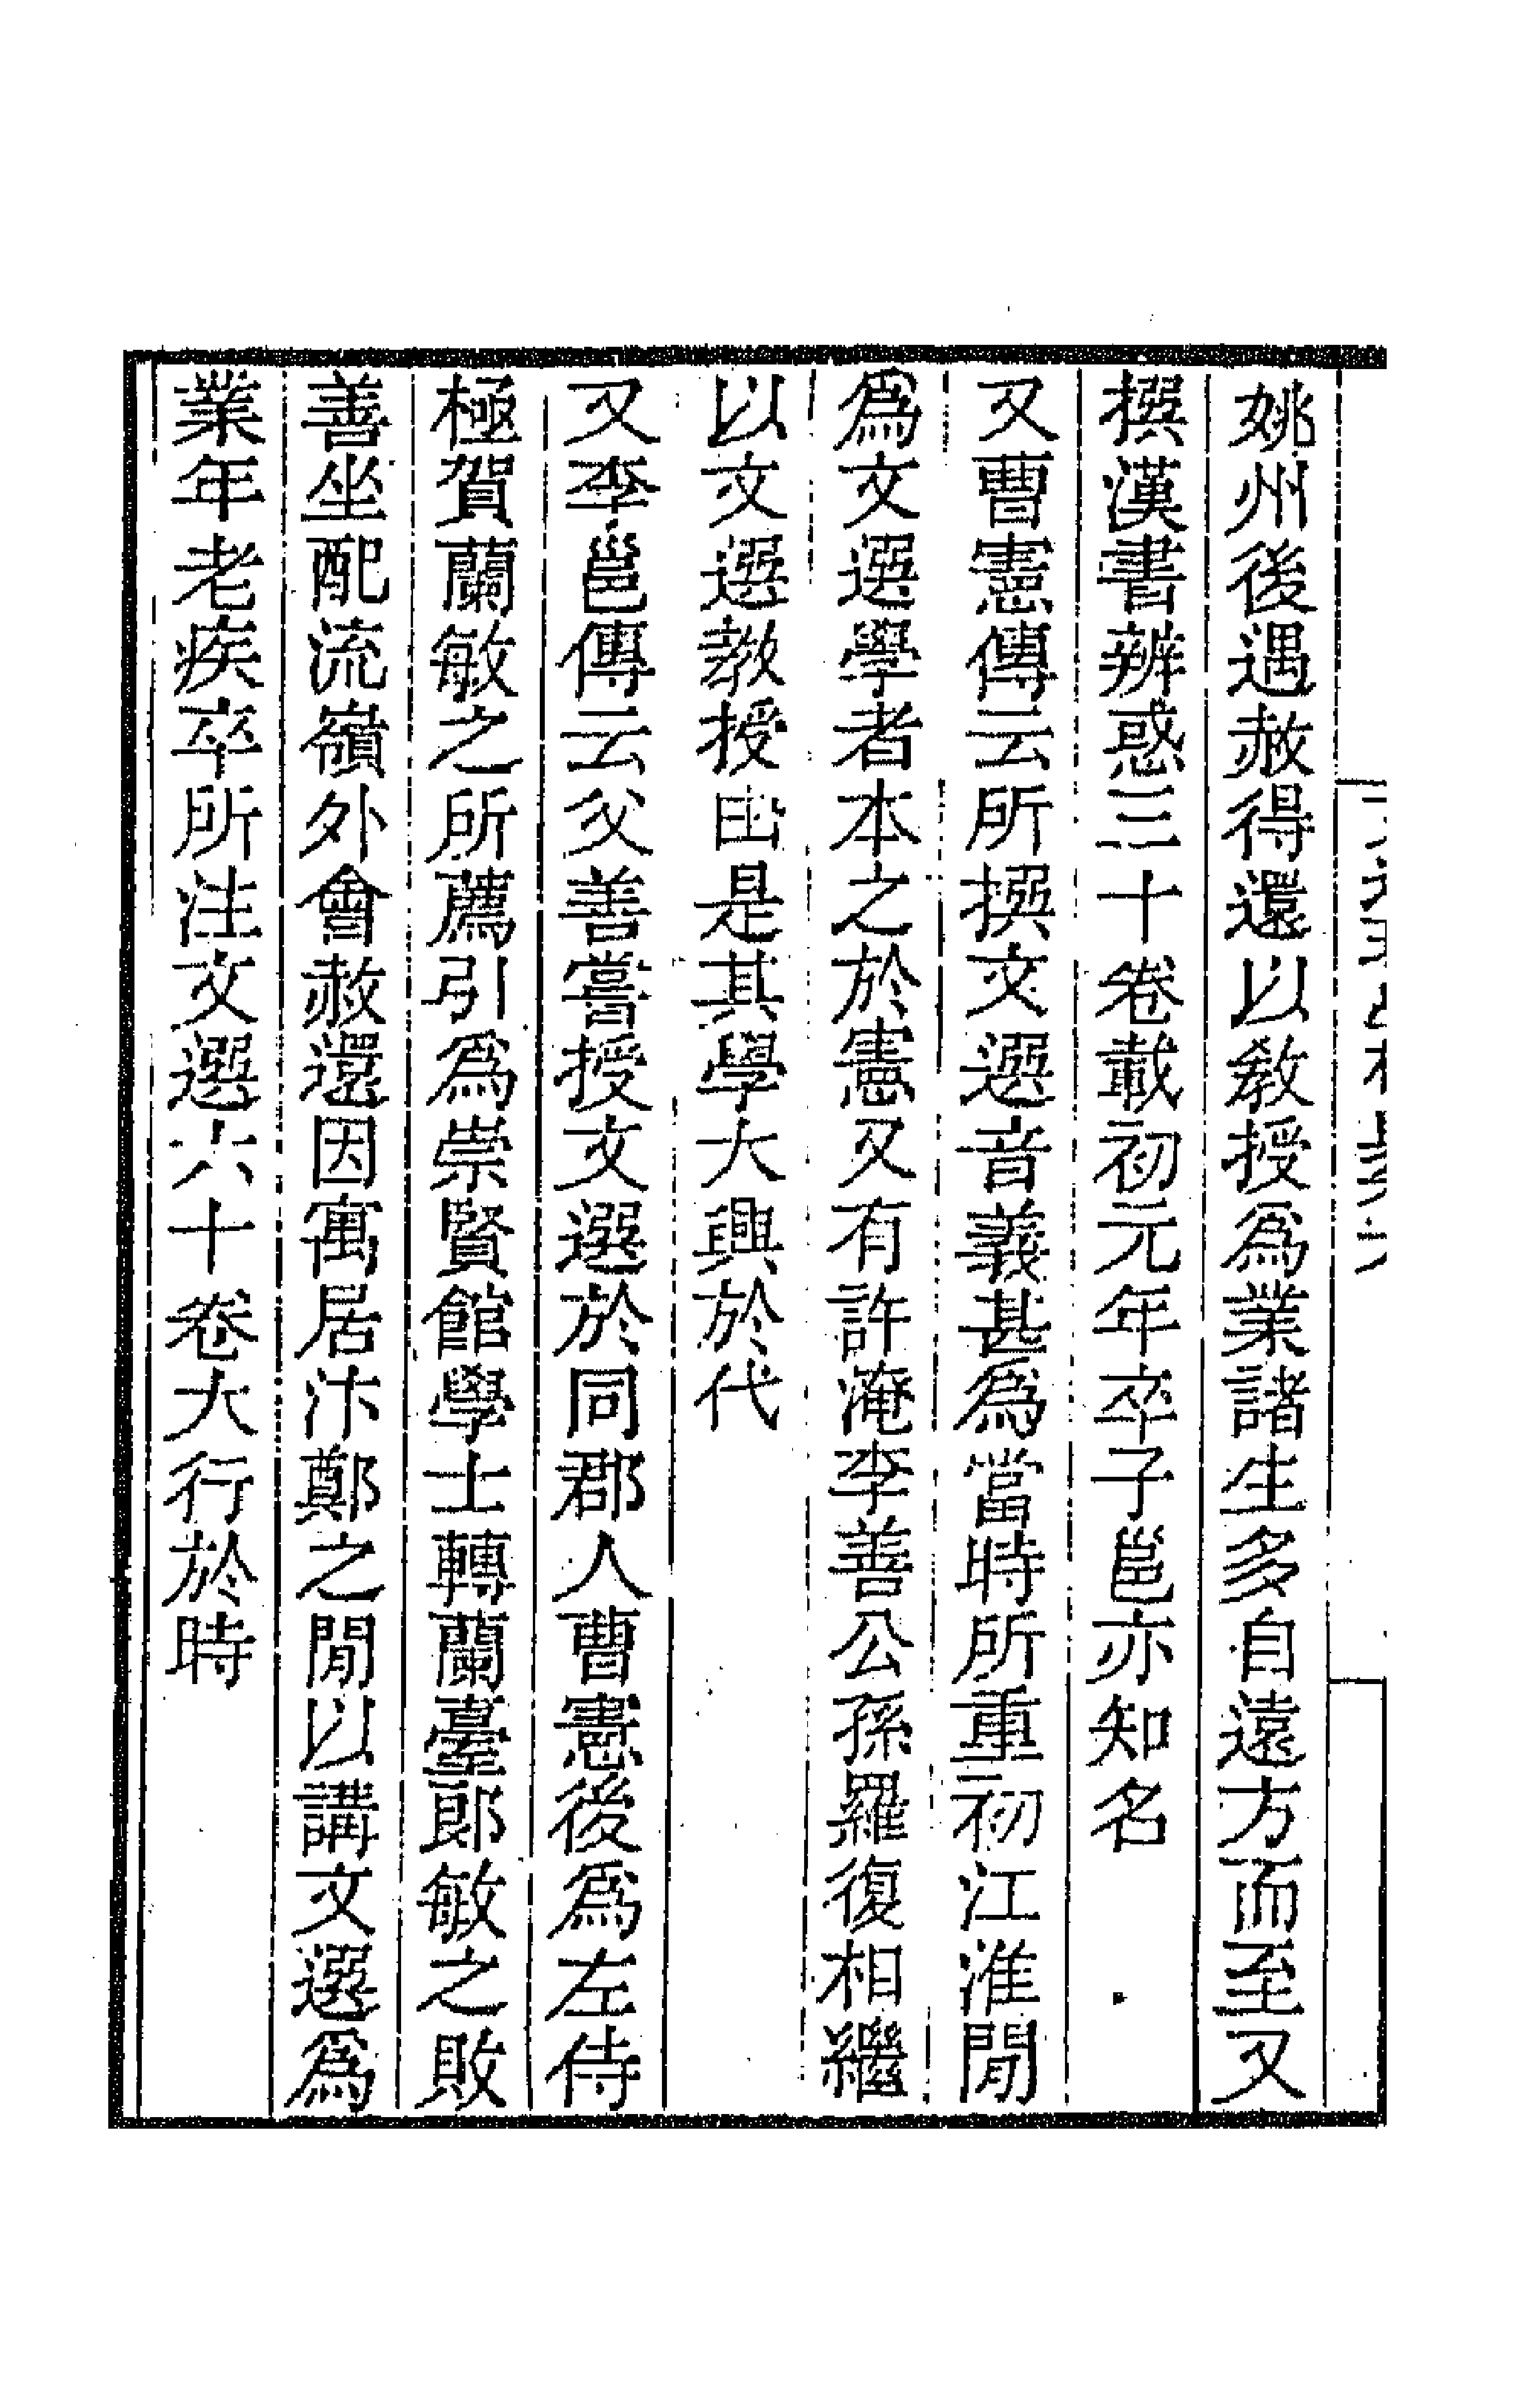 姚州後遇赦得還以教授爲業諸生多自遠方而至又
撰漢書辨惑三十卷載初元年卒子邕亦知名
又曹憲傳云所撰文選音義甚爲當時所重初江淮閒
爲文選學者本之於憲又有許淹李善公孫羅復相繼
以文選教授由是其學大興於代
又李邕傳云父善嘗授文選於同郡人曹憲後爲左侍
極賀蘭敏之所薦引爲崇賢館學士轉蘭臺郞敏之敗
善坐配流嶺外會赦還因寓居汴鄭之閒以講文選爲
業年老疾卒所注文選六十卷大行於時